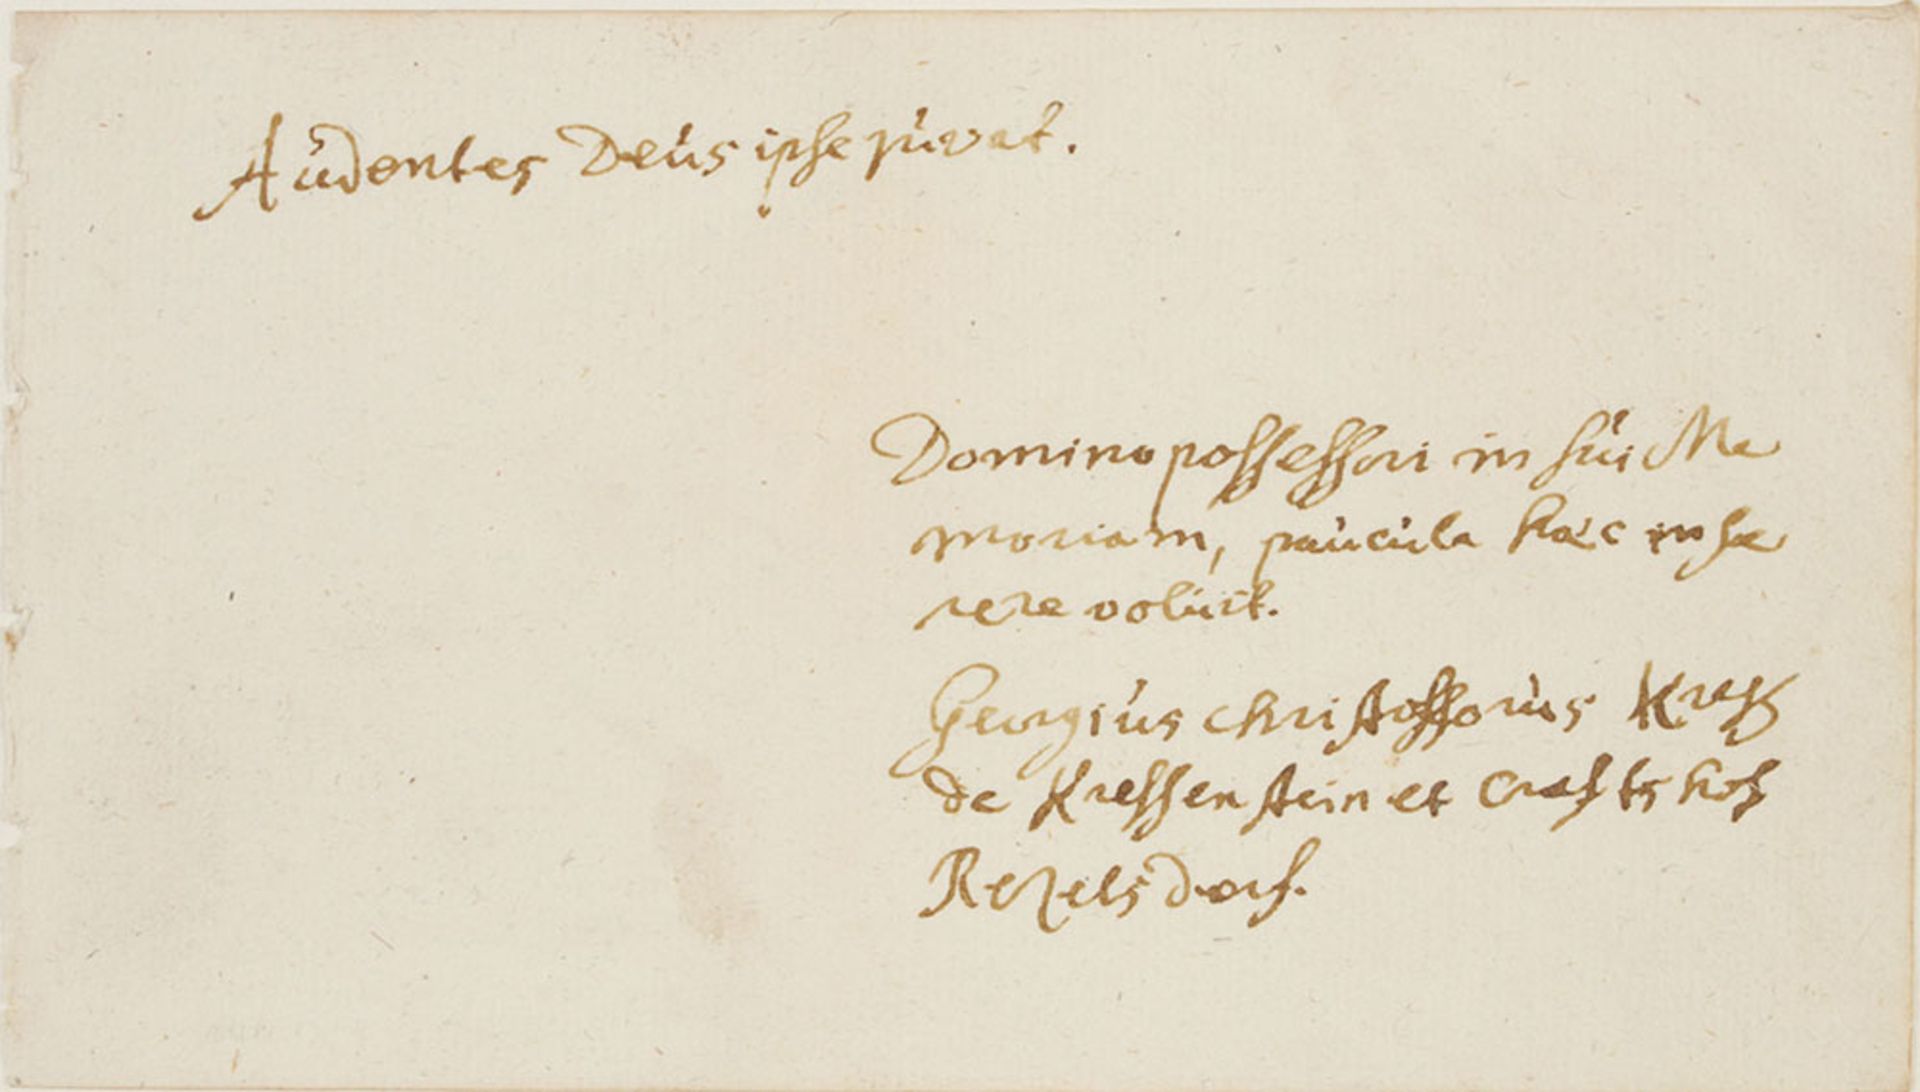 Audentes Deus ipse juvat.
Domino possessori in sui Me
moriam, paucula haec inse
rere voluit.
Georgius Christofforus Kreß
de Kressenstein et Craftshof
Rezelsdorf.